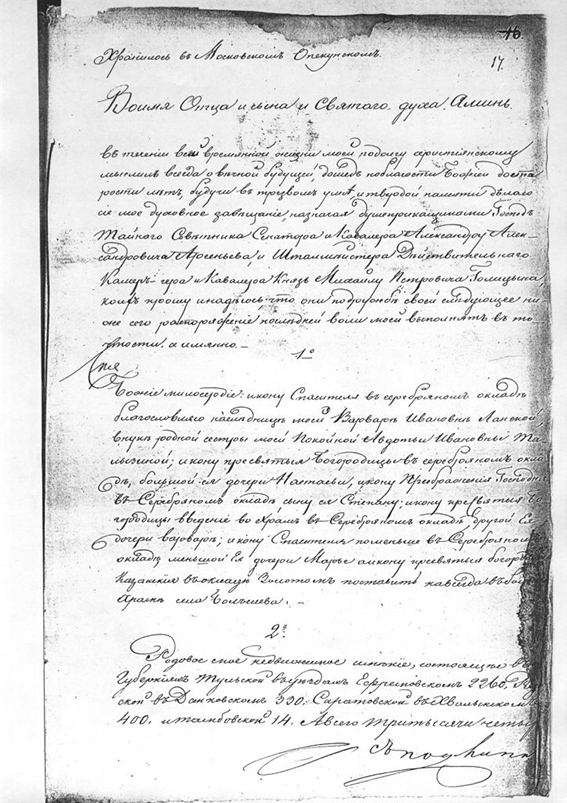 16
17.
Хранилось въ Московскомъ Опекунскомъ.
Воимя Отца и сына и Святаго духа Аминь.
въ теченіи всей временной жизни моей подолгу христіянскому
мыслилъ всегда о вѣчной будущей, дошедъ поблагости Божіей до ста
рости лѣтъ, будучи въ трезвомъ умѣ и твердой памяти дѣлаю
сіе мое духовное завѣщаніе, назначая душеприкащиками Господъ
Тайного Совѣтника Сенатора и Кавалера Александра Алек-
сандровича Арсеньева, и Шталмистера Дѣйствительнаго
Камергера и Кавалера Князь Михаилу Петровича Голицына
коихъ прошу инадѣюсь, что они своей слѣдующее ни
же сего распоряженіе послѣдней воли моей выполнятъ въ то
чности, а имянно. —
1е
Божіе милосердіе: икону Спасителя въ серебряномъ окладѣ
благословляю наслѣдницѣ моей Варварѣ Ивановнѣ Ланской,
внукѣ родной сестры моей Покойной Авдотьи Ивановны
икону пресвятыя Богородицы въ серебряномъ окла
дѣ, большой ея дочери Настасьи, икону Преображенія Господня
въ Серебряномъ окладѣ сыну ея Степану; икону пресвятыя Б
городицы введеніе во Храмъ въ Серебряномъ окладѣ другой Ея
дочери варварѣ; икону Спасителя поменьше въ Серебряномъ
окладѣ меньшой Ея дочери Марье а икону пресвятыя богоро
Казанскія въ окладѣ Золотомъ поставить навсегда въ
Храмѣ села
2е
Родовое мое недвижимое имѣніе, состоящее в
Губерніяхъ Тульской въ уѣздахъ Ефремовскомъ 2260.
ской въ Данковскомъ 330. Саратовской въ Хвалынскомъ
400. и тамбовской 14. А всего три тысячи четы